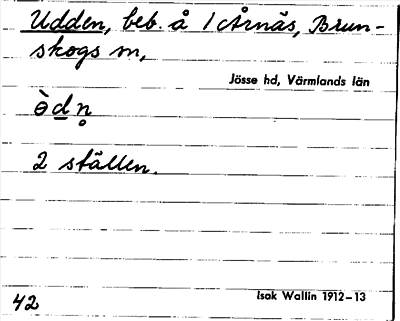 Udden, beb. å 1 Årnäs, Brun-
skogs sn,
Jösse hd, Värmlands län
ə̀dn̥
2 ställen.
42
Isak Wallin 1912–13